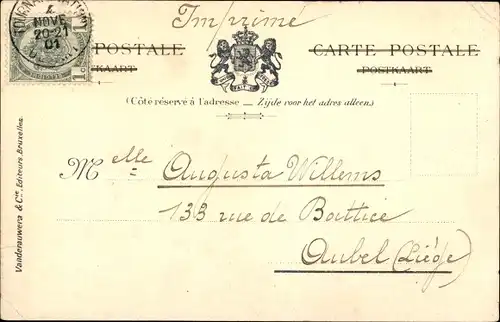 Imprimé
TOURNAI (STATION)
4
NOVE
20-21
01
1
CARTE POSTALE
POSTALE
POSTKAART
KAART
(Côté réservé à l'adresse — Zijde voor het adres alleen.)
Melle Augusta Willems
133 rue de Battice
Aubel (Liége)
Vanderauwera & Cie, Editeurs, Bruxelles.